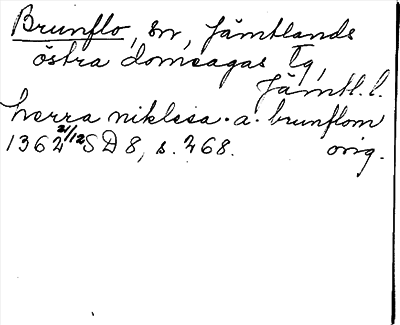 Brunflo, sn, Jämtlands
östra domsagas tg,
Jämtl. l.
herra niklesa · a · brunflom
1362 21/12 SD 8, s. 268. orig.